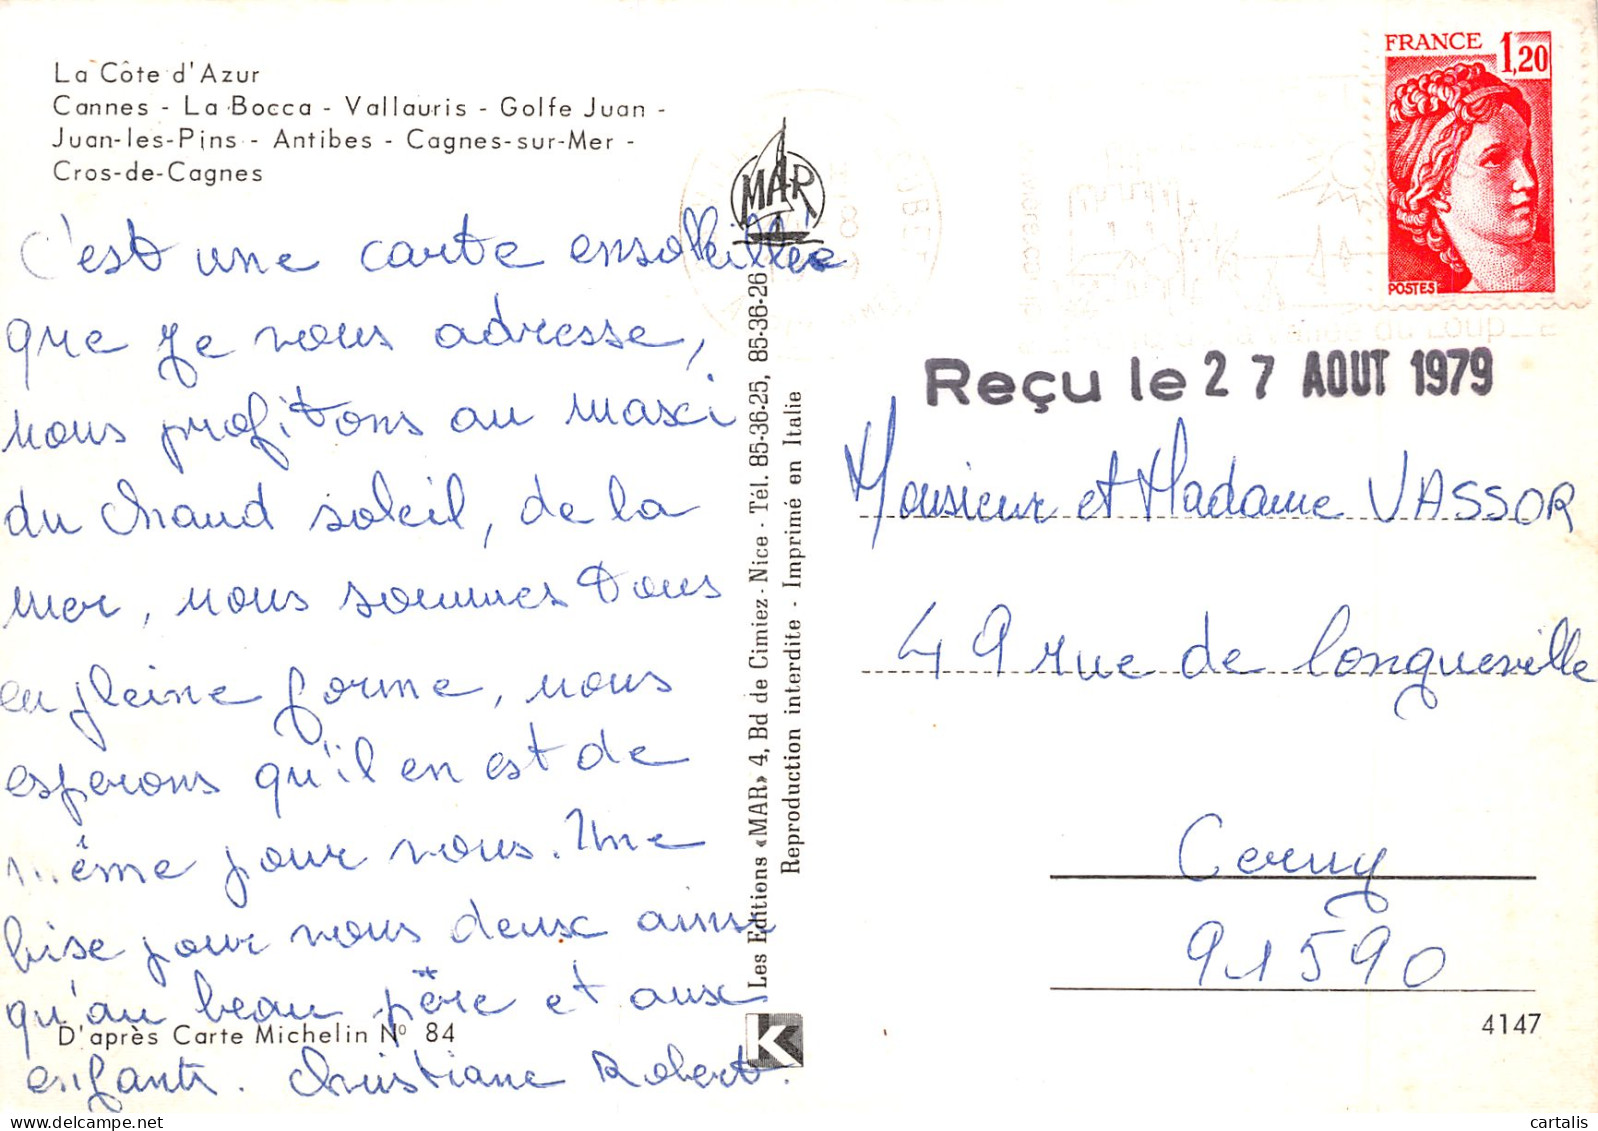 La Côte d'Azur
Cannes - La Bocca - Vallauris - Golfe Juan -
Juan-les-Pins - Antibes - Cagnes-sur-Mer -
Cros-de-Cagnes
C'est une carte ensoleillée
que je vous adresse,
nous profitons au maxi
du chaud soleil, de la
mer, nous sommes tous
en pleine forme, nous
esperons qu'il en est de
même pour vous. Une
bise pour vous deux ainsi
qu'au beau père et aux
enfants. Christiane Robert.
D'après Carte Michelin Nº 84
MAR
Les Editions «MAR» 4, Bd de Cimiez - Nice - Tél. 85-36-25, 85-36-26
Reproduction interdite - Imprimé en Italie
K
FRANCE 1,20
POSTES
Reçu le 27 AOUT 1979
Monsieur et Madame VASSOR
49 rue de Longueville
Cerny
91590
4147
cartalis